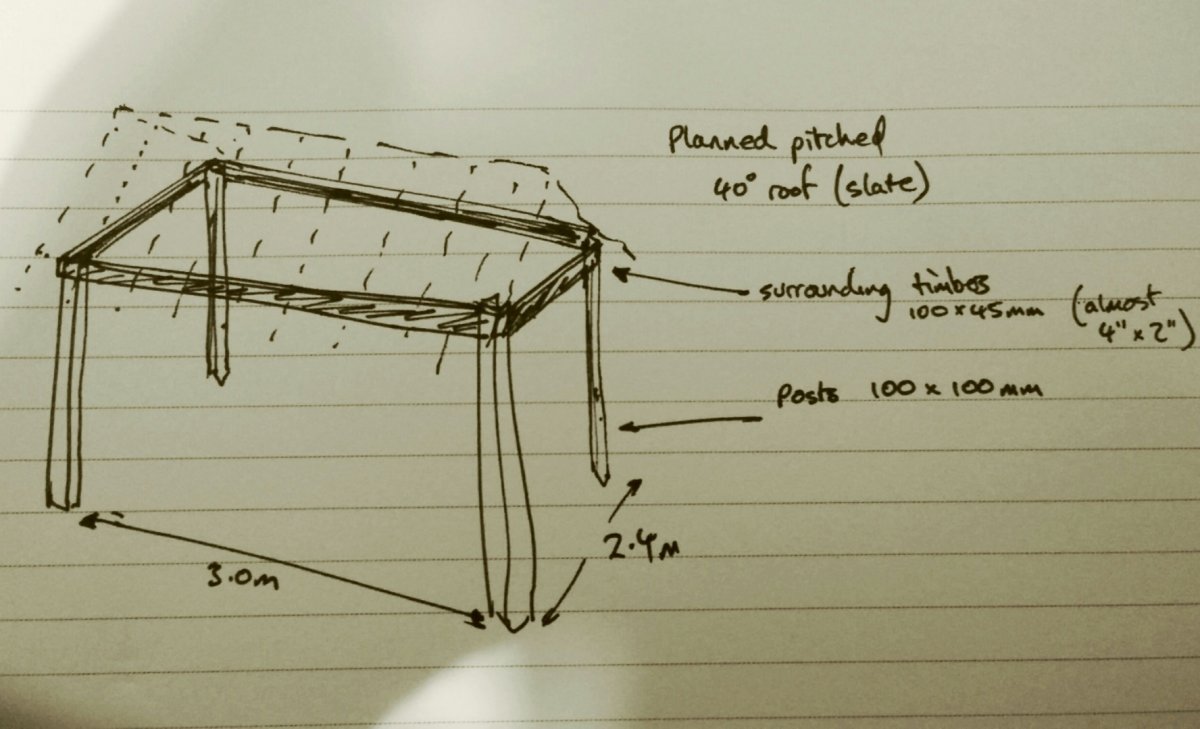 Planned pitched
40° roof (slate)
surrounding timbers
100 x 45mm (almost
4" x 2")
Posts 100 x 100 mm
2.4m
3.0m